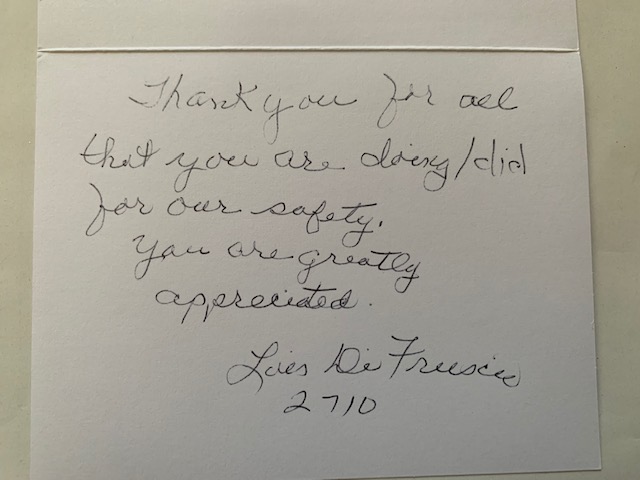 Thank you for all
that you are doing/did
for our safety.
You are greatly
appreciated.
Lois Di
2710